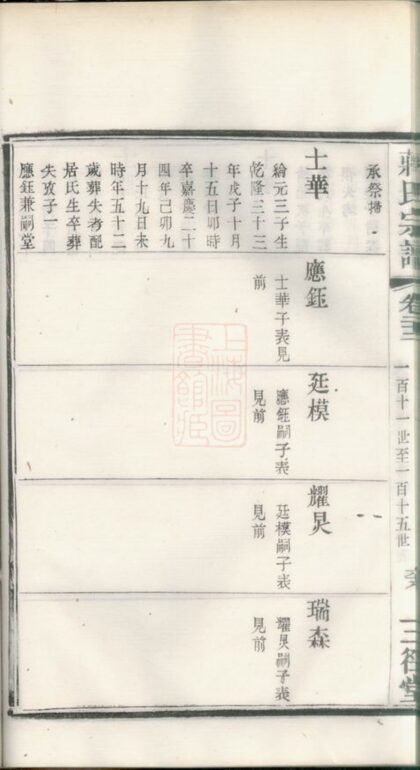 蔣氏宗譜
卷三
一百十一世至一百十五世
三徑堂
承祭掃
士華
綸元三子生
乾隆三十三
年戊子十月
十五日卯時
卒嘉慶二十
四年己卯九
月十九日未
時年五十二
歲葬失考配
居氏生卒葬
失攷子一
應鈺兼嗣堂
應鈺
士華子表見
前
廷模
應鈺嗣子表
見前
耀炅
廷模嗣子表
見前
瑞森
耀炅嗣子表
見前
上海圖
書館藏